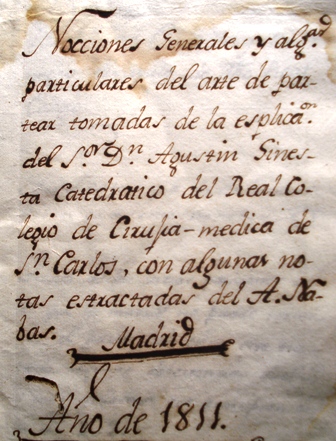 Nocciones Generales y alg.ˢ
particulares del arte de par-
tear tomadas de la esplica.ⁿ
del S.ᵒʳ D.ⁿ Agustin Gines-
ta Catedratico del Real Co-
legio de Cirusia-medica de
S.ⁿ Carlos, con algunas no-
tas estractadas del A. Na-
bas.
Madrid
Año de 1811.